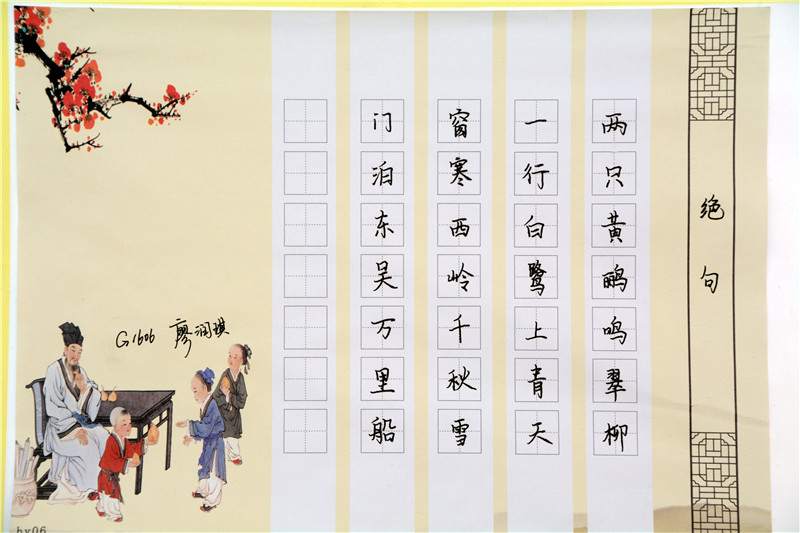 绝句
两只黄鹂鸣翠柳
一行白鹭上青天
窗寒西岭千秋雪
门泊东吴万里船
G1606 廖润琪